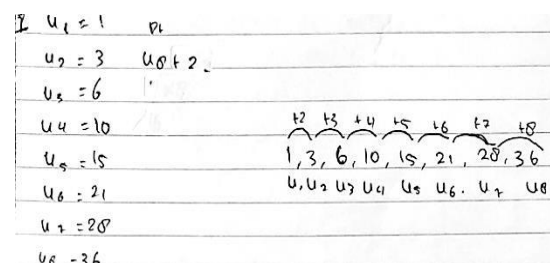 U1 = 1
U2 = 3 U8 + 2.
U3 = 6
U4 = 10
U5 = 15
U6 = 21
U7 = 28
U8 = 36
+2 +3 +4 +5 +6 +7 +8
1, 3, 6, 10, 15, 21, 28, 36
U1 U2 U3 U4 U5 U6. U7 U8